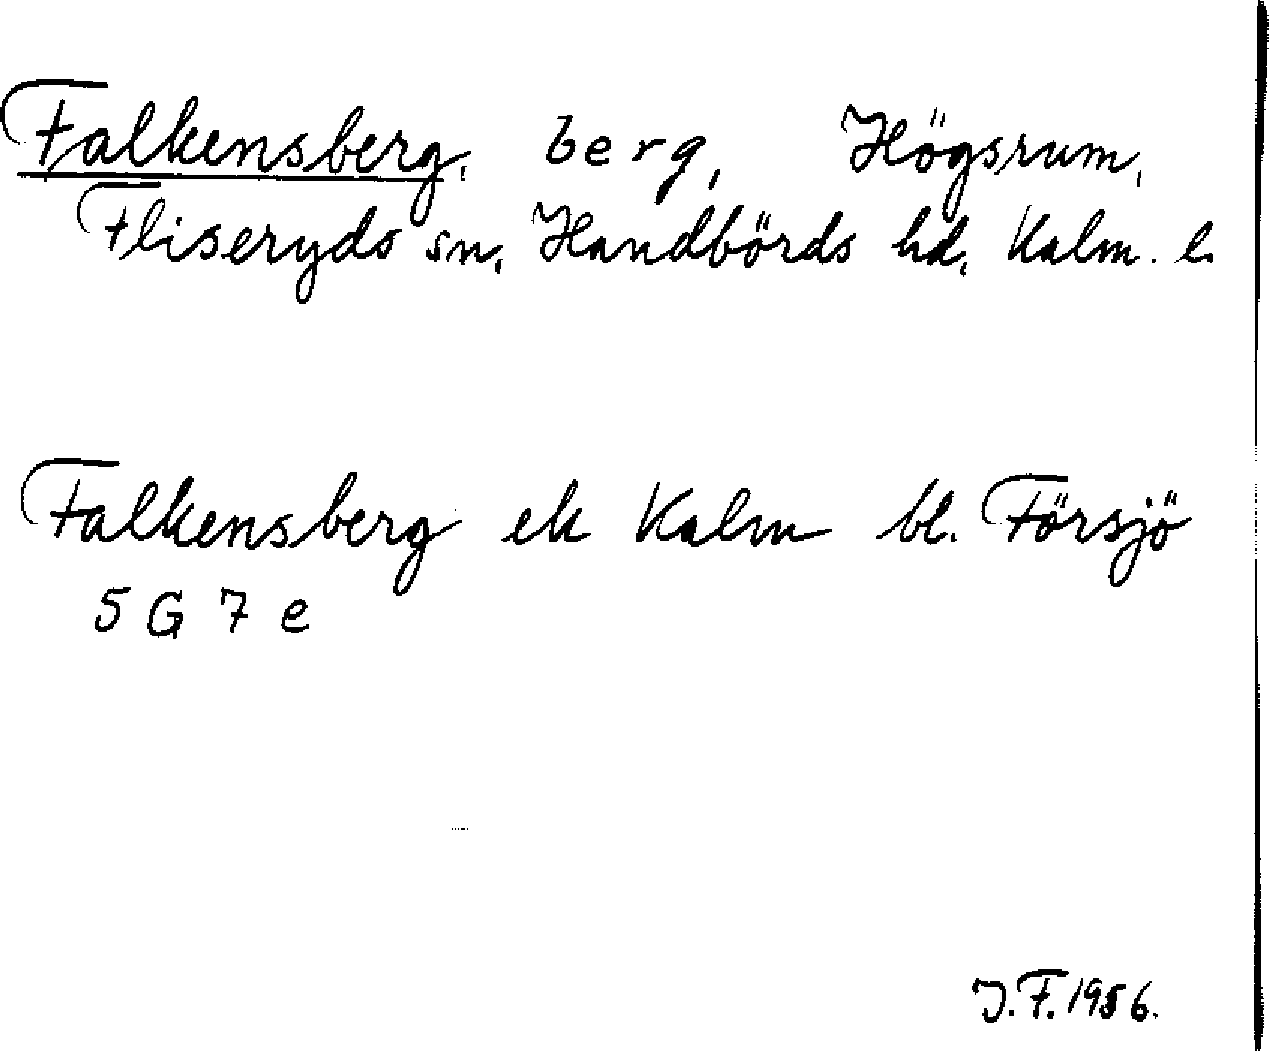 Falkensberg, berg, Högsrum,
Fliseryds sn, Handbörds hd, Kalm. l.
Falkensberg ek Kalm bl. Försjö
5 G 7 e
J.F. 1956.